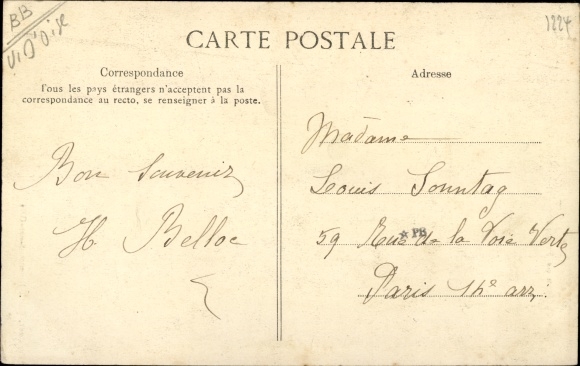 BB
Vl D'Oise
1224
CARTE POSTALE
Correspondance
Tous les pays étrangers n'acceptent pas la
correspondance au recto, se renseigner à la poste.
Bon Souvenir
H. Belloc
Adresse
Madame
Louis Sonntag
59 Rue de la Voie Verte
PB
Paris 14e arr.